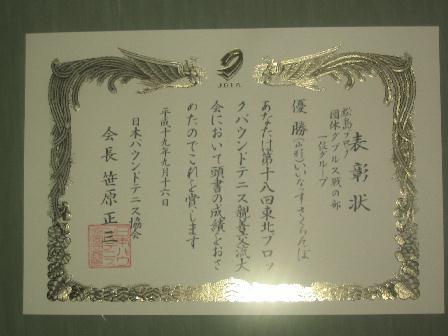 JBTA
表彰状
団体ダブルス戦の部
一位グループ
優勝(山形)いなずまさくらんぼ
あなたは第十八回東北ブロッ
クバウンドテニス親善交流大
会において頭書の成績をおさ
めたのでこれを賞します
平成十九年九月十六日
日本バウンドテニス協会
会長 笹原正三